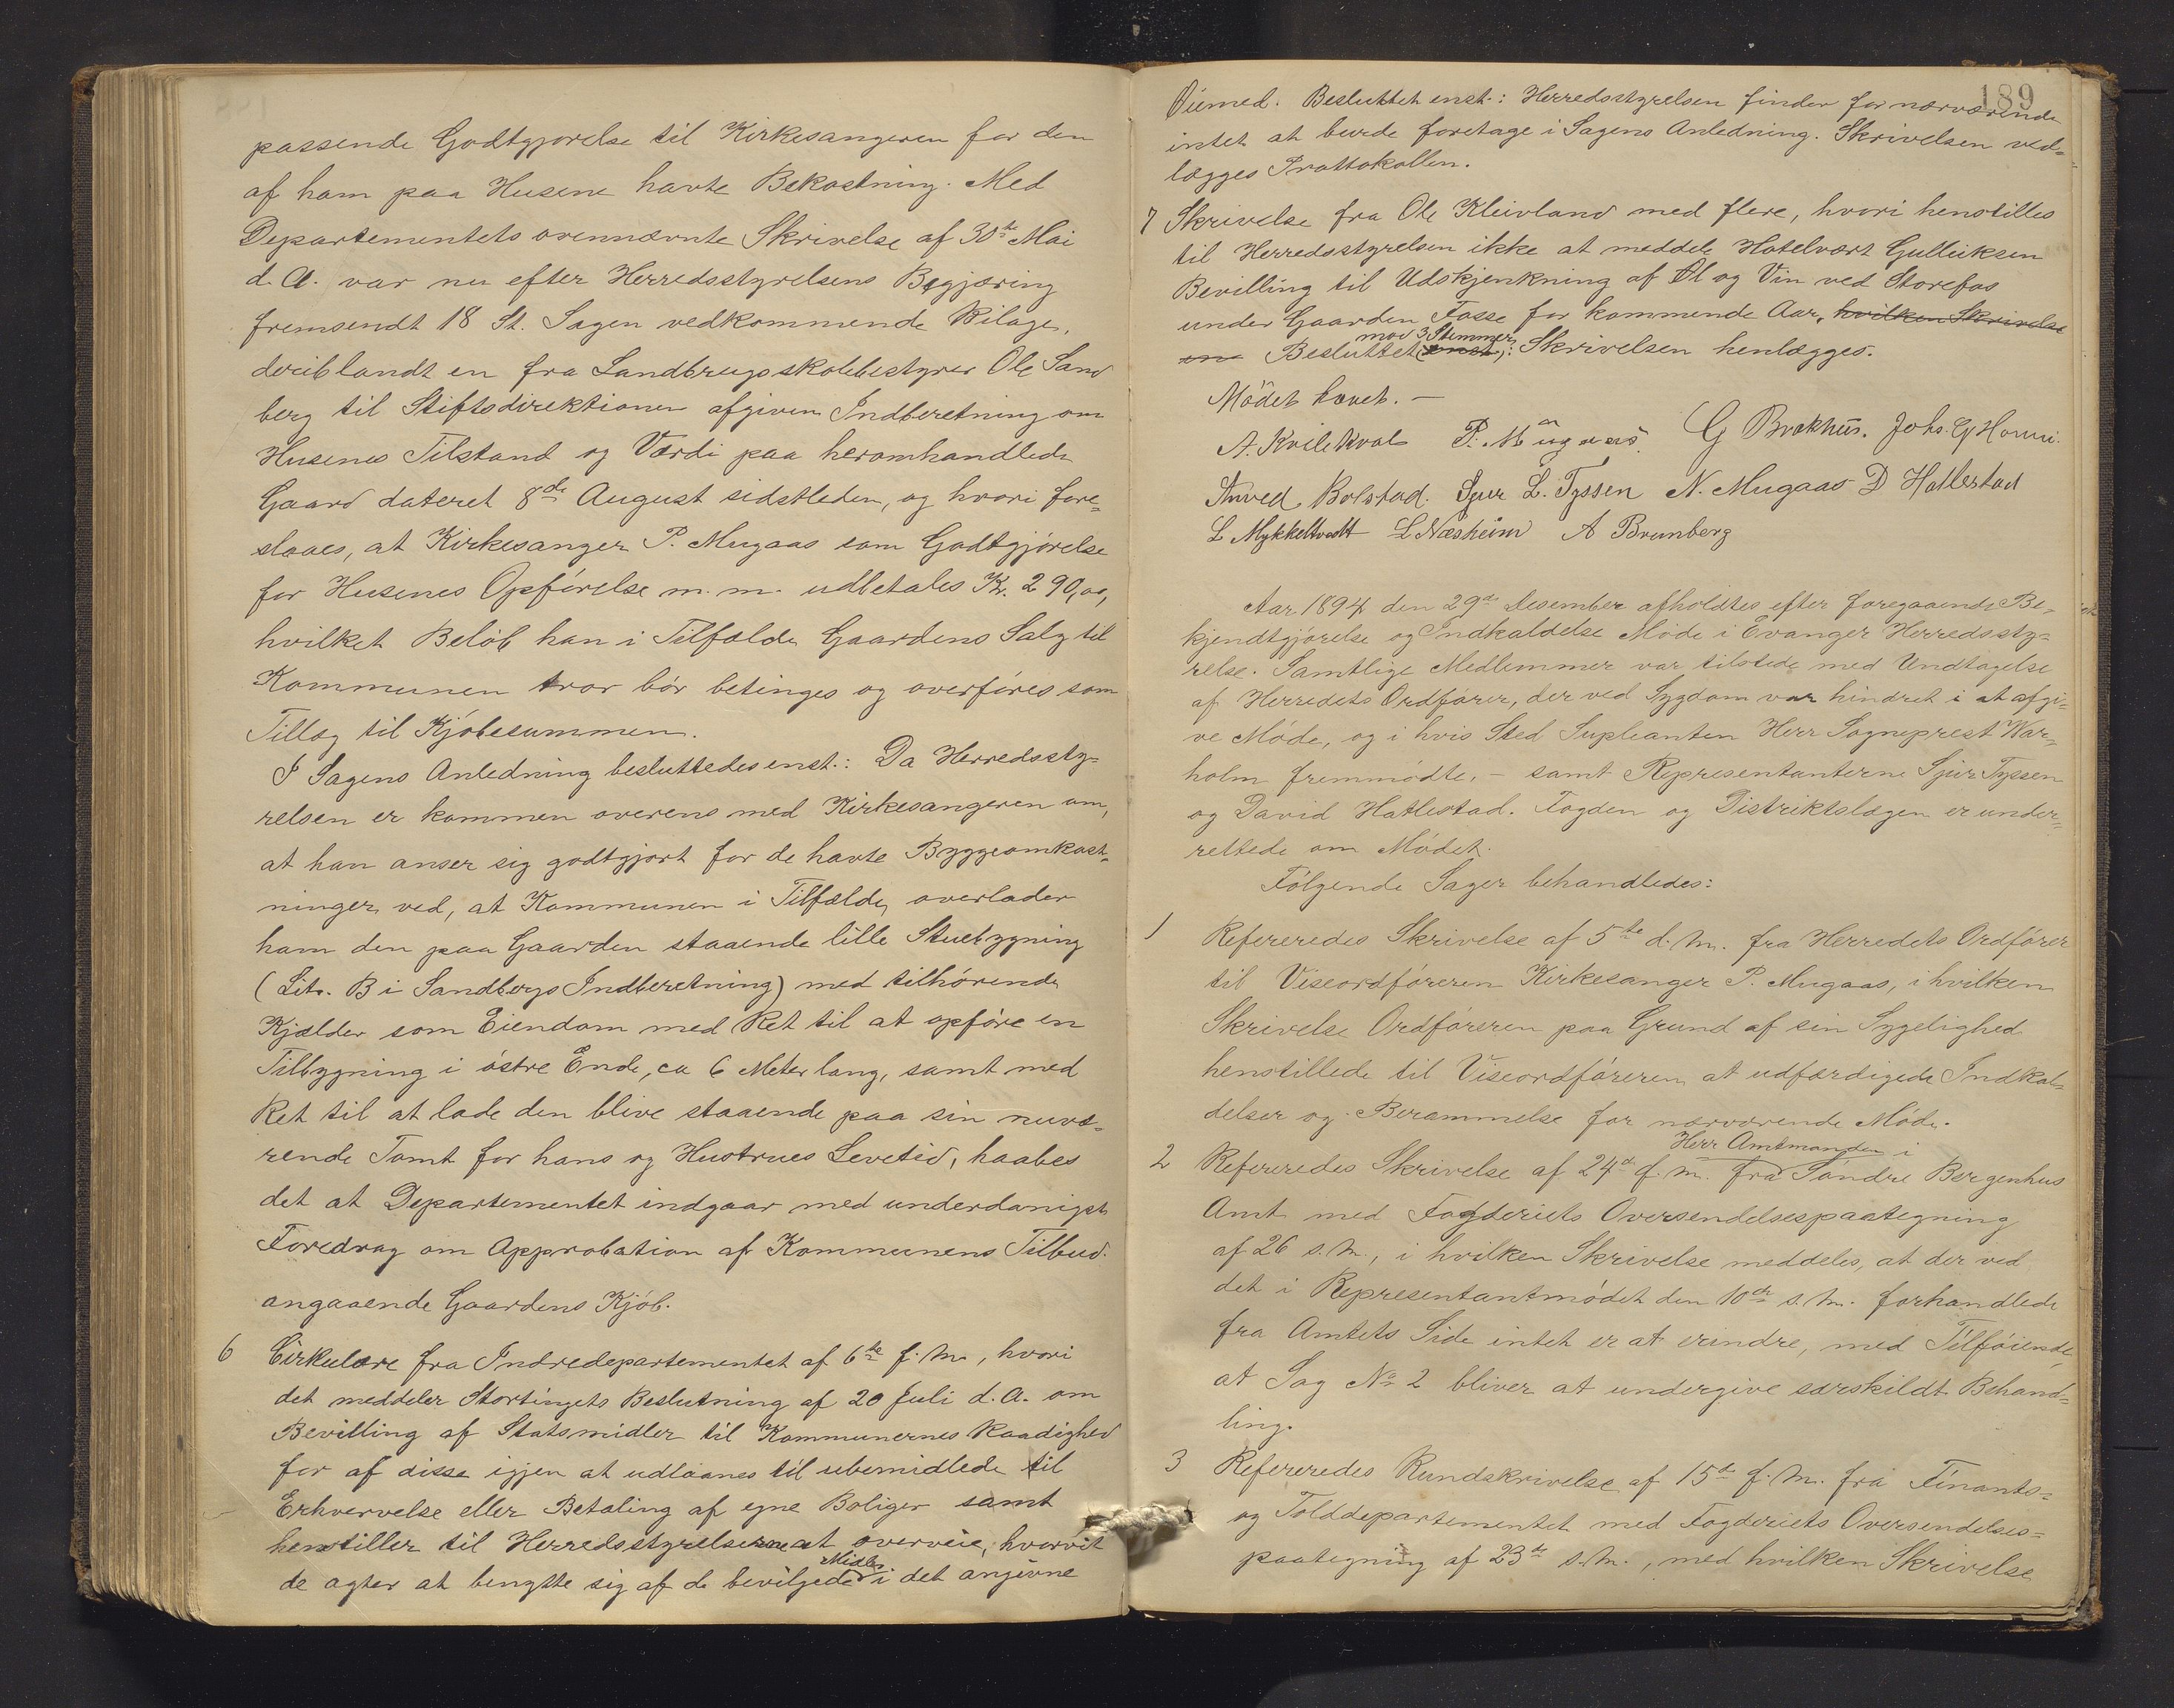 passende Godtgjorelse til Kirkesangeren for den
af ham paa Husene havte Bekostning. Med
Departementets ovennævnte Skrivelse af 30te Mai
d. A. var nu efter Herredsstyrelsens Begjæring
fremsendt 18 St. Sagen vedkommende Bilage,
deriblandt en fra Landbrugsskolebestyrer Ole Sand
berg til Stiftsdirektionen afgiven Indberetning om
Husenes Tilstand og Værdi paa heromhandlede
Gaard dateret 8de August sidstleden, og hvori fore=
slaaes, at Kirkesanger P. Mugaas som Godtgjörelse
for Husenes Opförelse m. m. udbetales Kr. 290,00,
hvilket Belöb han i Tilfælde Gaardens Salg til
Kommunen tror bör betinges og overföres som
Tillæg til Kjöbesummen.
I Sagens Anledning besluttedes enst.: Da Herredssty=
relsen er kommen overens med Kirkesangeren om,
at han anser sig godtgjort for de havte Byggeomkost=
ninger ved, at Kommunen i Tilfælde overlader
ham den paa Gaarden staaende lille Stuebygning
(Litr. B i Sandbergs Indberetning) med tilhörende
Kjælder som Eiendom med Ret til at opföre en
Tilbygning i östre Ende, ca 6 Meter lang, samt med
Ret til at lade den blive staaende paa sin nuvæ=
rende Tomt for hans og Hustrues Levetid, haabes
det at Departementet indgaar med underdanigst
Foredrag om Approbation af Kommunens Tilbud
angaaende Gaardens Kjöb.
6 Cirkulære fra Indredepartementet af 6te f. M., hvori
det meddeler Stortingets Beslutning af 20 Juli d. A. om
Bevilling af Statsmidler til Kommunernes Raadighed
for af disse igjen at udlaanes til ubemidlede til
Erhvervelse eller Betaling af egne Boliger samt
henstiller til Herredsstyrelserne at overveie, hvorvit
de agter at benytte sig af de bevilgede Midler i det angivne
189
Öiemed. Besluttet enst.: Herredsstyrelsen finder for nærværende
intet at burde foretage i Sagens Anledning. Skrivelsen ved=
lægges Prottokollen.
7 Skrivelse fra Ole Kleivland med flere, hvori henstilles
til Herredsstyrelsen ikke at meddele Hotelvært Gulliksen
Bevilling til Udskjenkning af Øl og Vin ved Storefos
under Gaarden Fosse for kommende Aar, hvilken Skrivelse
en Besluttet enst, mod 3 Stemmer: Skrivelsen henlægges.
Mödet hævet. —
A. Kvilekval P. Mugaas. G Brækhus. Johs. G Horvei.
Anved Bolstad. Sjur L. Tyssen N. Mugaas D Hatlestad
L Mykkeltvedt L Næsheim A Brunborg
Aar 1894 den 29de Desember afholdtes efter foregaaende Be=
kjendtgjörelse og Indkaldelse Möde i Evanger Herredssty=
relse. Samtlige Medlemmer var tilstede med Undtagelse
af Herredets Ordförer, der ved Sygdom var hindret i at afgi=
ve Möde, og i hvis Sted Supleanten Herr Sogneprest War=
holm fremmödte, – samt Representanterne Sjur Tyssen
og David Hatlestad. Fogden og Distriktslægen er under=
rettede om Mödet.
Fölgende Sager behandledes:
1 Refereredes Skrivelse af 5te d. M. fra Herredets Ordförer
til Viseordföreren Kirkesanger P. Mugaas, i hvilken
Skrivelse Ordföreren paa Grund af sin Sygelighed
henstillede til Viseordföreren at udfærdigede Indkal=
delser og Berammelse for nærværende Möde.
2 Refereredes Skrivelse af 24de f. M. fra Herr Amtmanden i Söndre Bergenhus
Amt med Fogderiets Oversendelsespaategning
af 26 s. M., i hvilken Skrivelse meddeles, at der ved
det i Representantmödet den 10de s. M. forhandlede
fra Amtets Side intet er at erindre, med Tilföiende,
at Sag No 2 bliver at undergive særskildt Behand=
ling.
3 Refereredes Rundskrivelse af 15de f. M. fra Finants=
og Tolddepartementet med Fogderiets Oversendelses=
paategning af 23de s. M., med hvilken Skrivelse